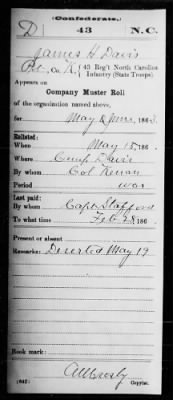 Confederate.
D 43 N.C.
James H Davis
Pvt, Co. K, 43 Reg't North Carolina
Infantry (State Troops)
Appears on
Company Muster Roll
of the organization named above,
for May & June, 1863.
Enlisted:
When May 15, 186
Where Camp Davis
By whom Col Kenan
Period war
Last paid:
By whom Capt Stafford
To what time Feb 28, 186
Present or absent
Remarks: Deserted May 19
Book mark:
(642) Copyist.